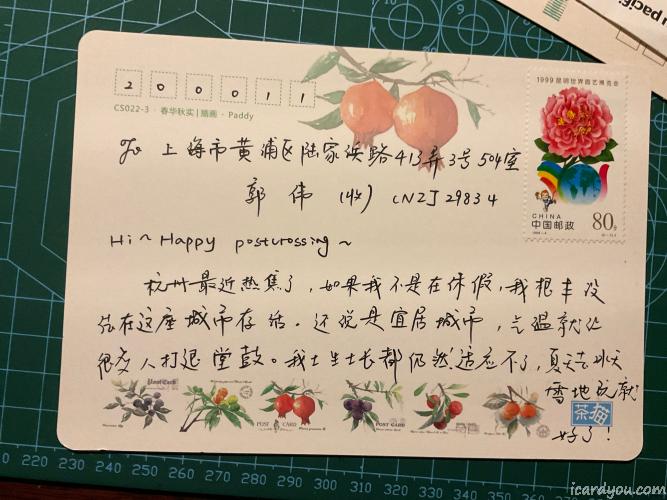 pacific
200011
CS022-3 · 春华秋实 | 插画 · Paddy
1999昆明世界园艺博览会
CHINA
中国邮政 80分
To 上海市黄浦区陆家浜路413弄3号504室
郭伟 (收) CNZJ 29834
Hi ~ Happy postcrossing ~
杭州最近热焦了,如果我不是在休假,我根本没
法在这座城市存活。还说是宜居城市,气温就让
很多人打退堂鼓。我土生土长都仍然适应不了,夏天去冰天
雪地玩就
好了!
Post Card
POST CARD
POST CARD
茶猫
110 120 130 140 150 160 170 180 190 200 210 220 230 240 250 260 270 280 290 300 310 320 330 340
icardyou.com